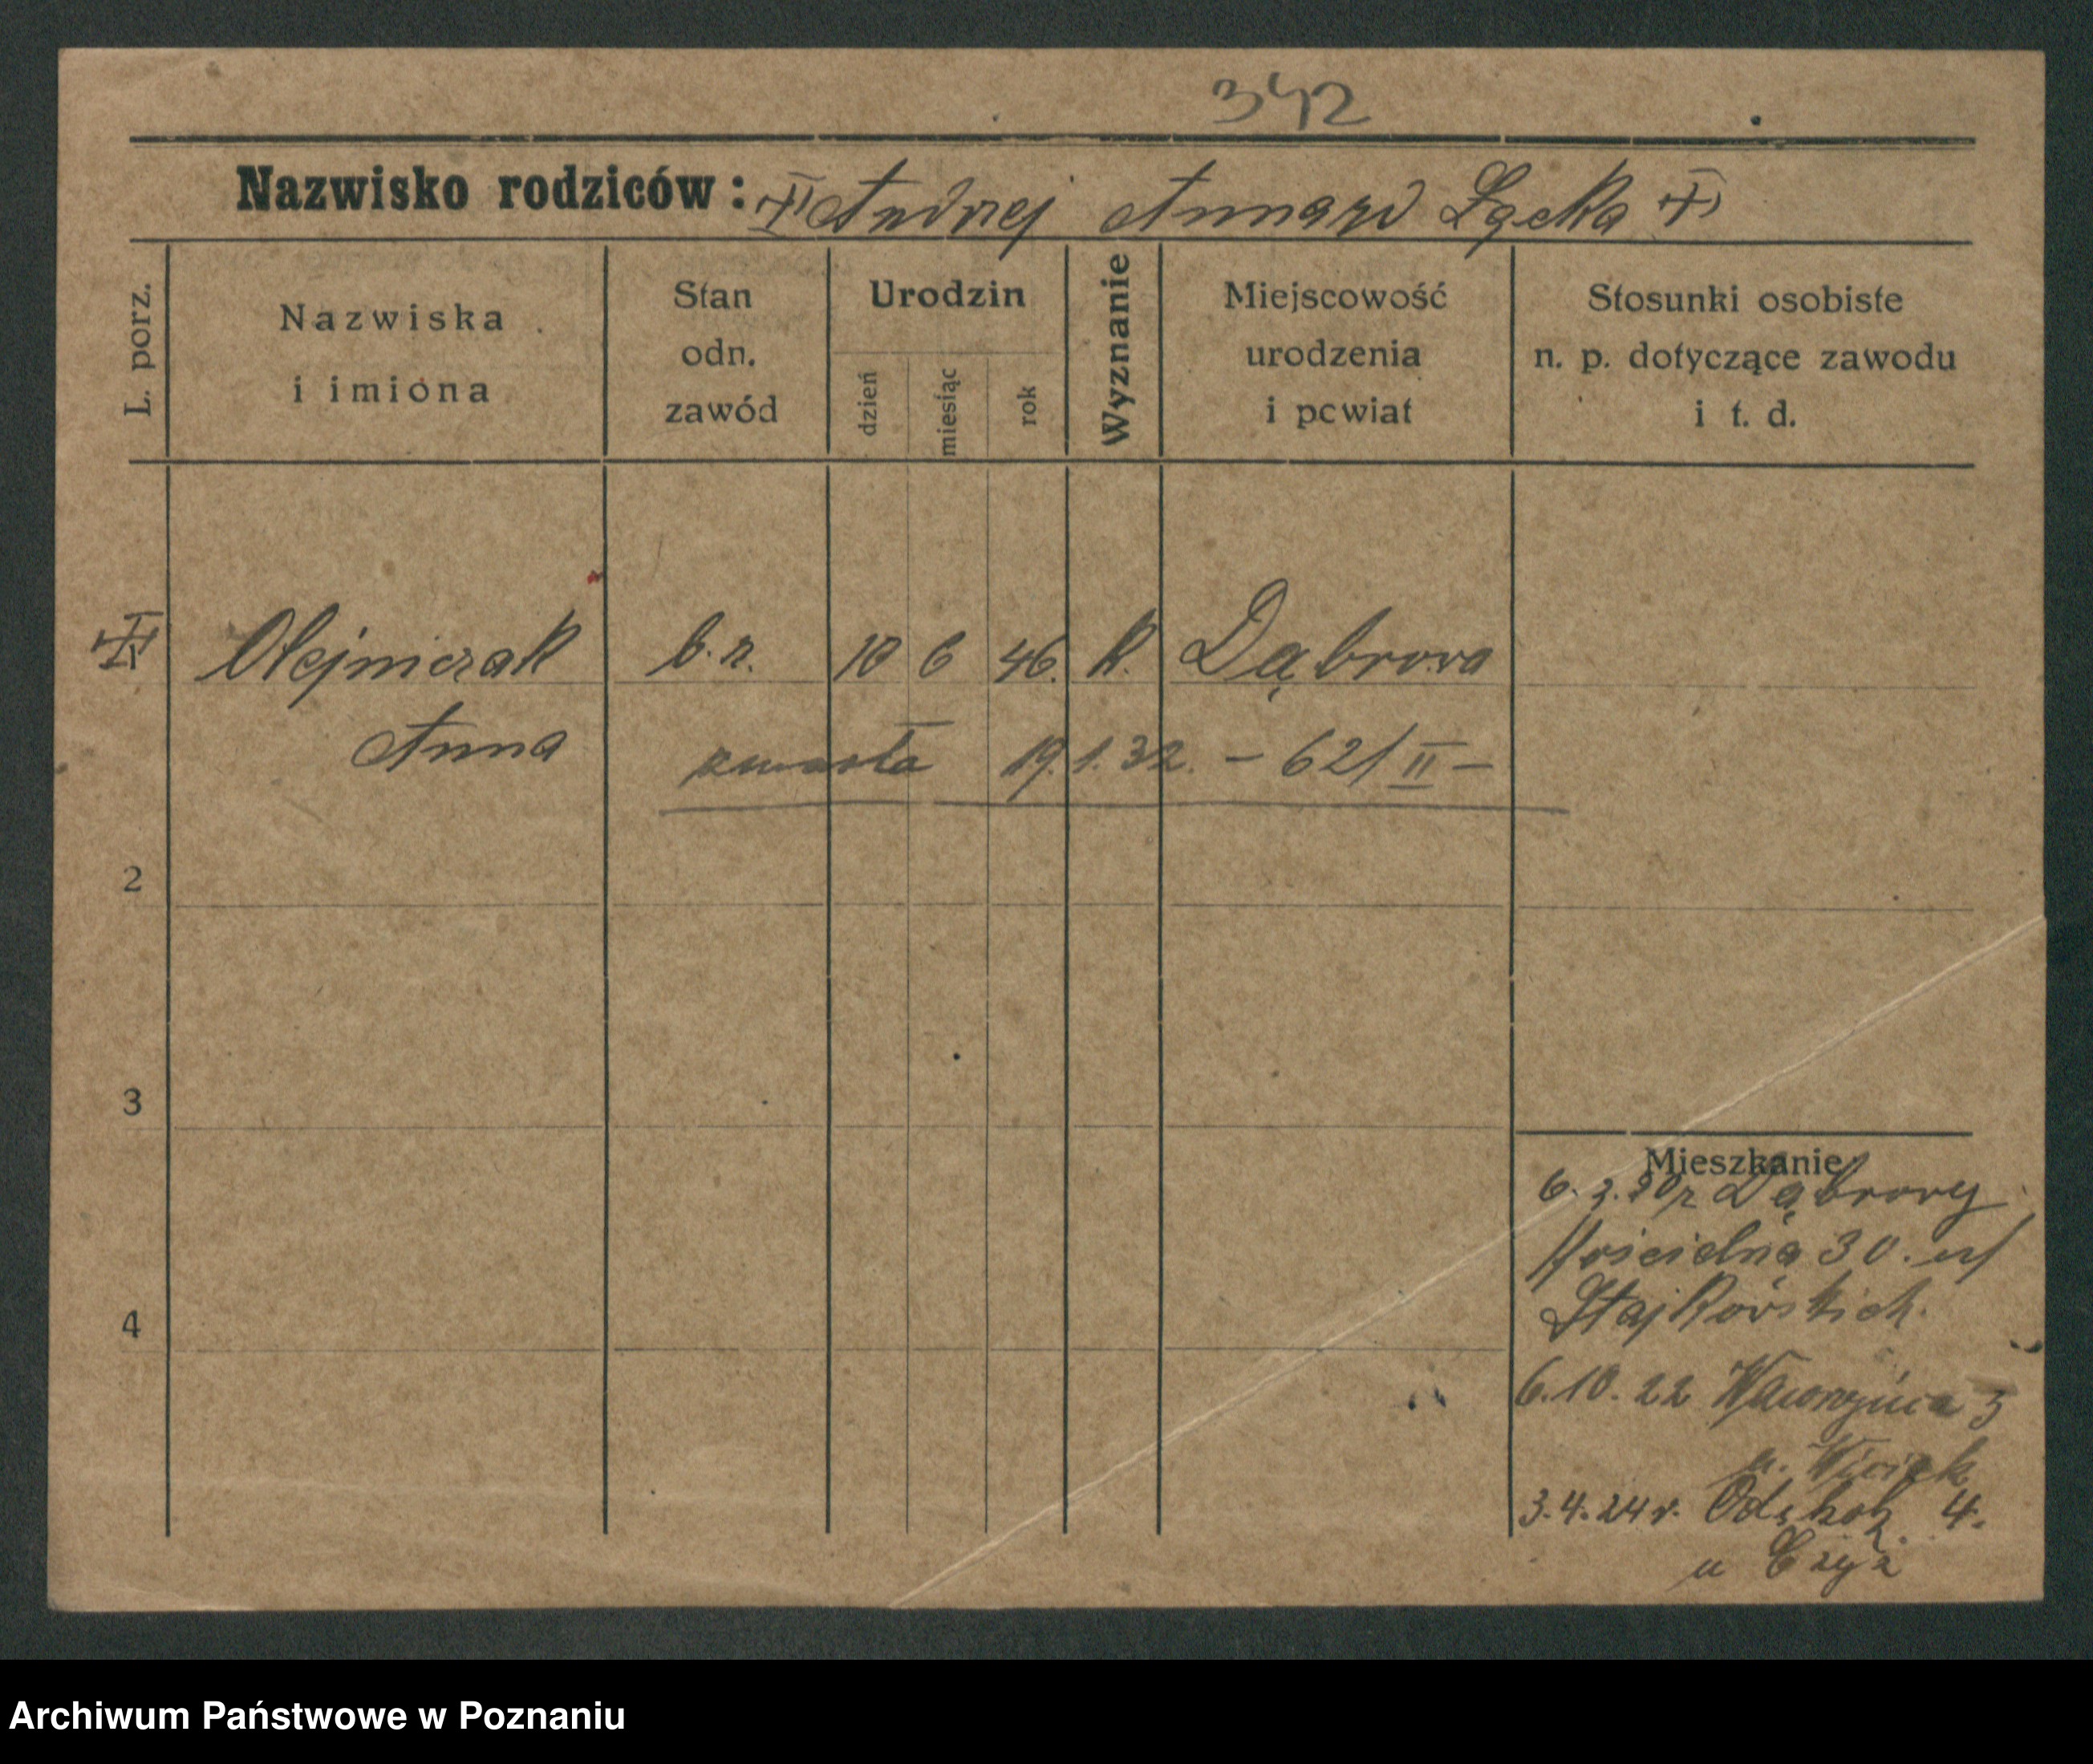 342
Nazwisko rodziców: Andrzej Anna zd Łącka
L. porz.
Nazwiska i imiona
Stan odn. zawód
Urodzin
dzień
miesiąc
rok
Wyznanie
Miejscowość urodzenia i powiat
Stosunki osobiste n. p. dotyczące zawodu i t. d.
Olejniczak b. z. 10 6 46. k. Dąbrowa
Anna
zmarła 19.1.32. – 62/II –
2
3
4
Mieszkanie
Dąbrowy
Kościelna 30. u/
Stajkowskich.
6.10.22 Wawrzyńca 3
u. Wiciak
3.4.24 r. 4.
u Czyż
Archiwum Państwowe w Poznaniu